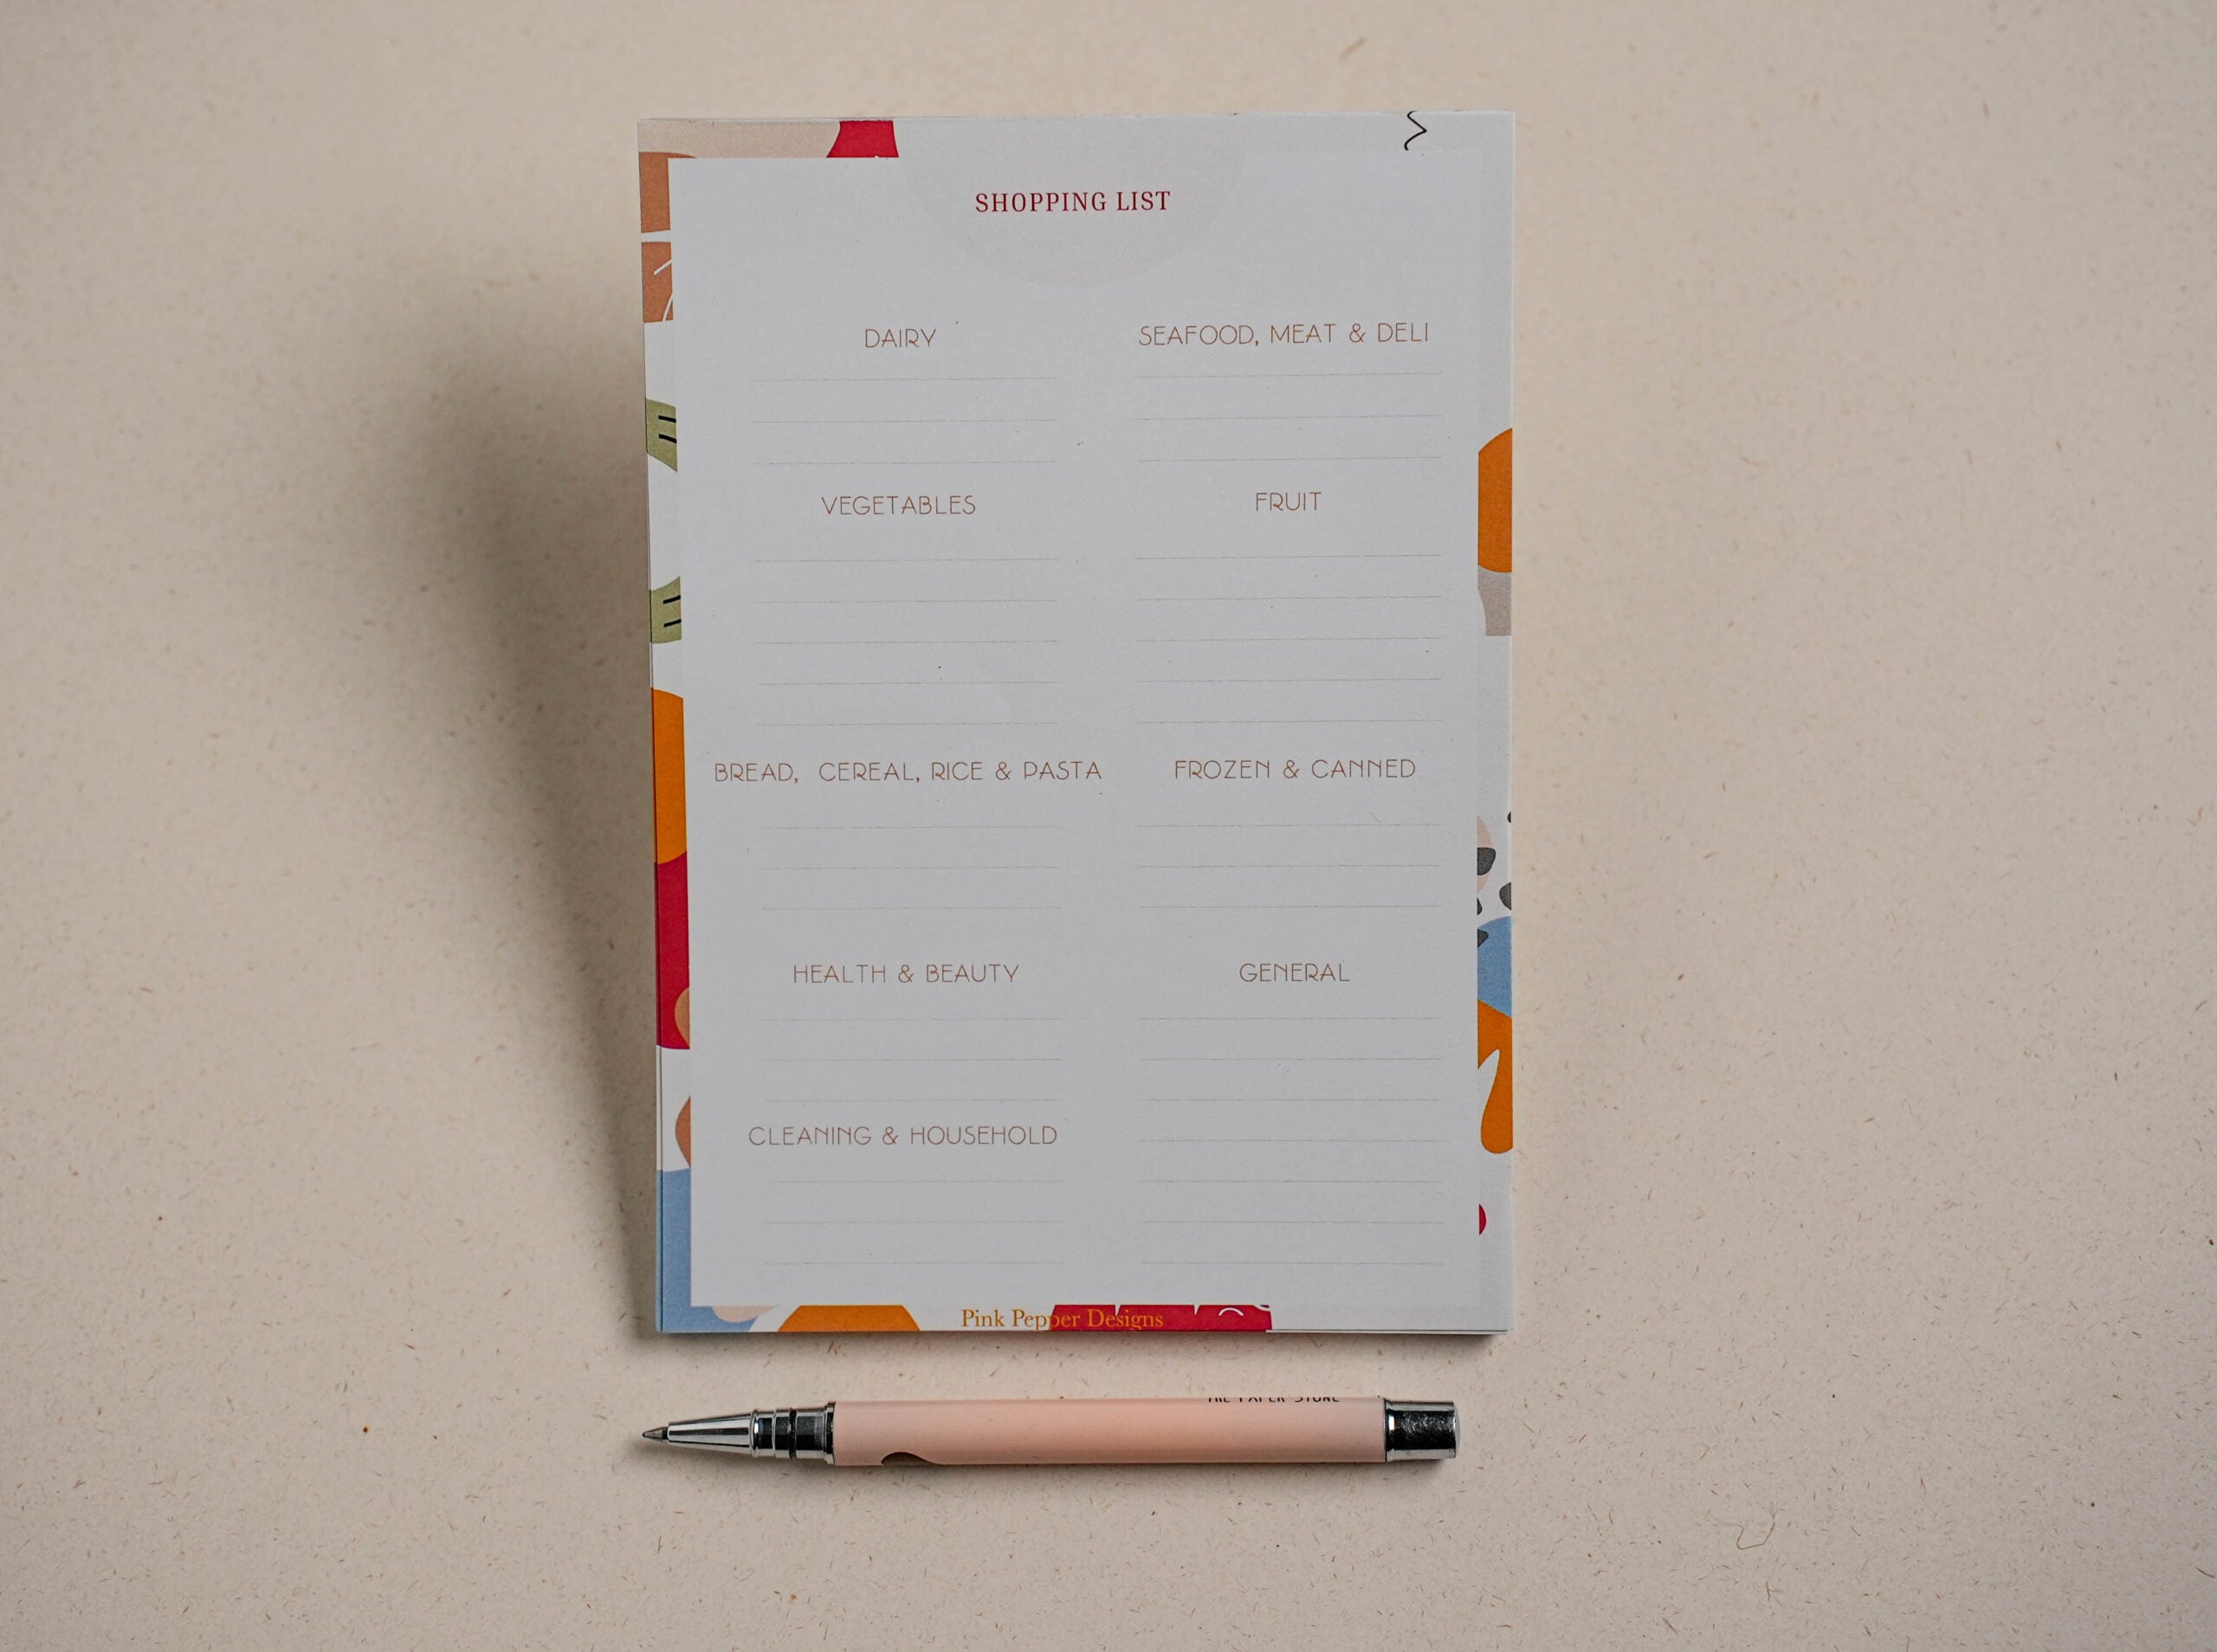 SHOPPING LIST
DAIRY
SEAFOOD, MEAT & DELI
VEGETABLES
FRUIT
BREAD, CEREAL, RICE & PASTA
FROZEN & CANNED
HEALTH & BEAUTY
GENERAL
CLEANING & HOUSEHOLD
Pink Pepper Designs
THE PAPER STORE